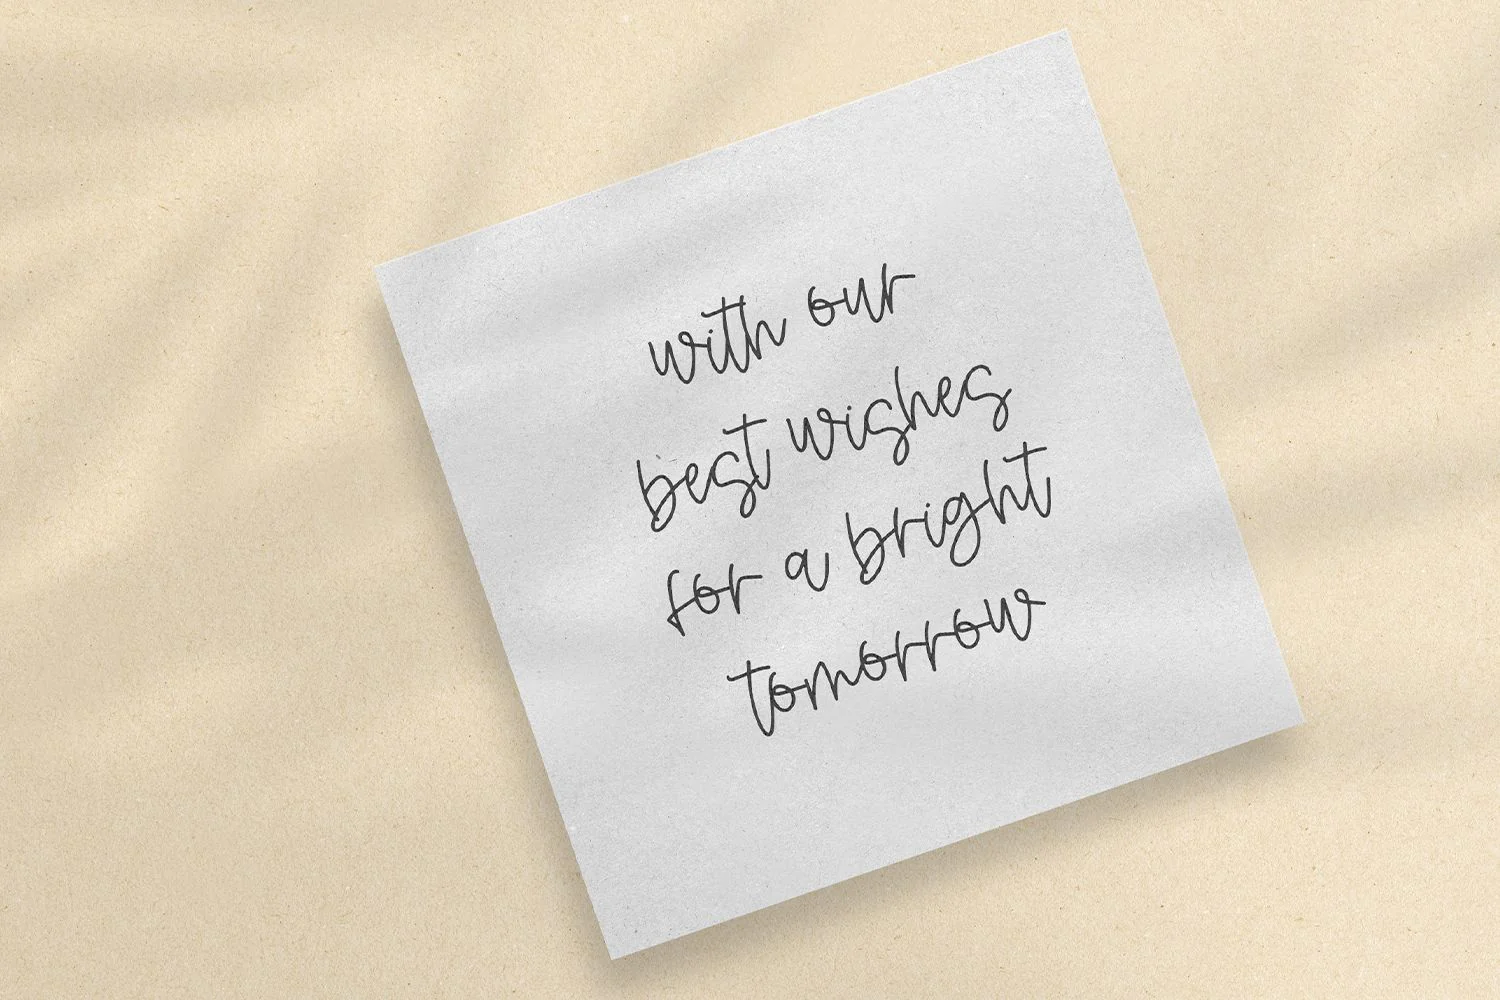 with our
best wishes
for a bright
tomorrow